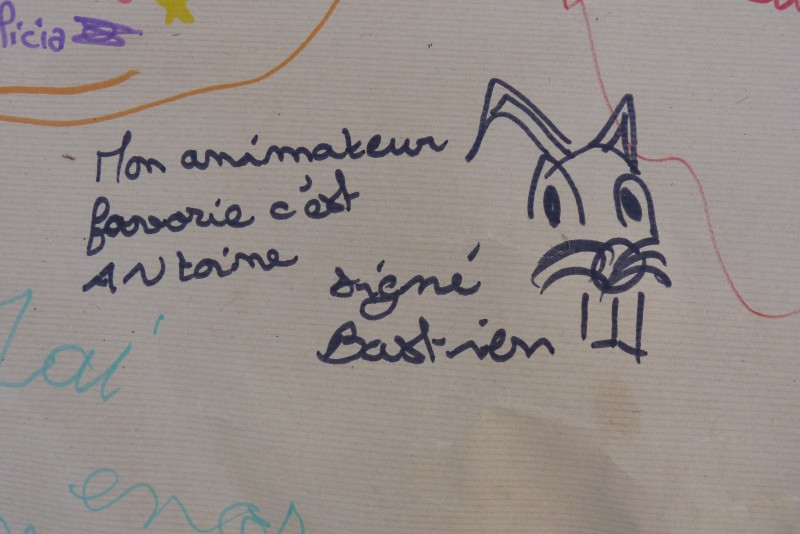 licia
Mon animateur
favorie c'est
ANtoine
signé
Bastien